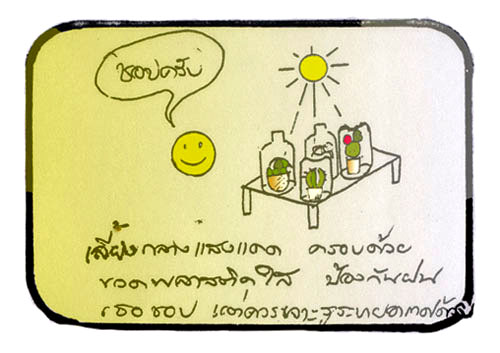 ชอบครับ
เลี้ยงกลางแสงแดด ครอบด้วย
ขวดพลาสติกใส ป้องกันฝน
เธอชอบ แต่ควรเจาะรูระบาย